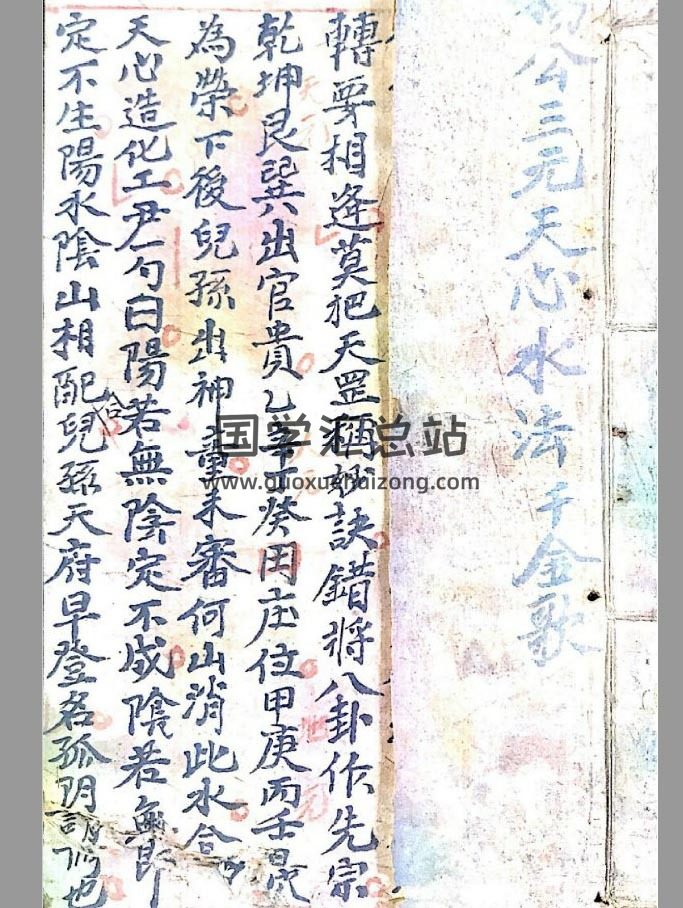 公三元天心水法千金歌
轉要相逢莫把天罡稱妙訣錯將八卦作先宗
乾坤艮巽出官貴乙辛丁癸田庄位甲庚丙壬最
為榮下後兒孫出神童未審何山消此水合
天心造化工尹一勺曰陽若無陰定不成陰若無陽
定不生陽水陰山相配合兒孫天府早登名孤阴
国学汇总站
www.guoxuehuizong.com